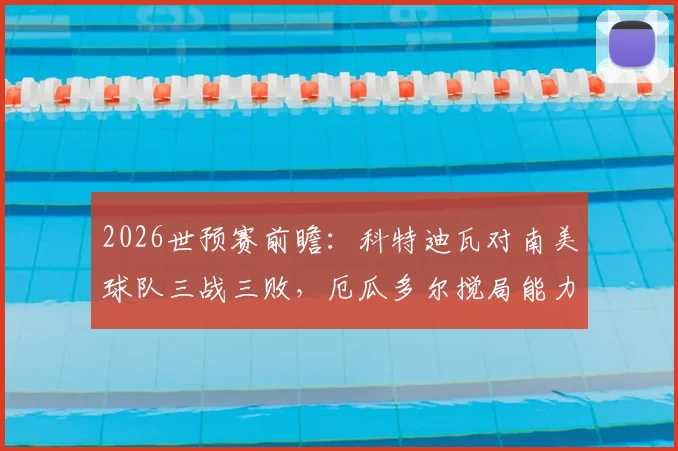 2026世预赛前瞻：科特迪瓦对南美
球队三战三败，厄瓜多尔搅局能力